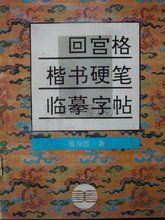 回宫格
楷书硬笔
临摹字帖
杨为国 著